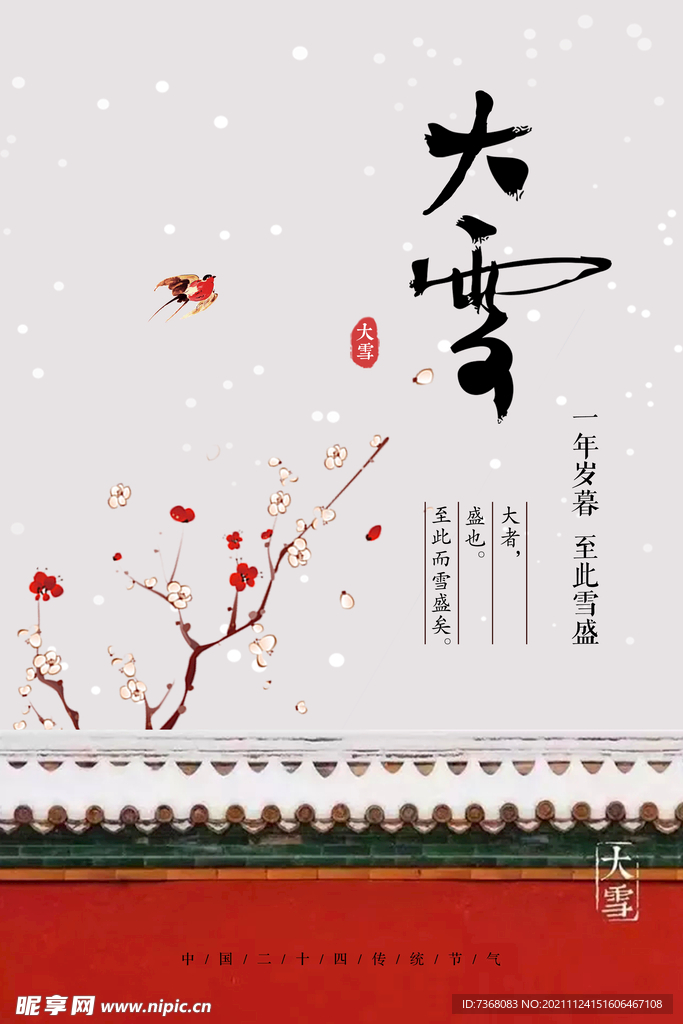 大雪
大雪
一年岁暮 至此雪盛
大者，
盛也。
至此而雪盛矣。
大雪
中/国/二/十/四/传/统/节/气
昵享网 www.nipic.cn
ID:7368083 NO:20211124151606467108